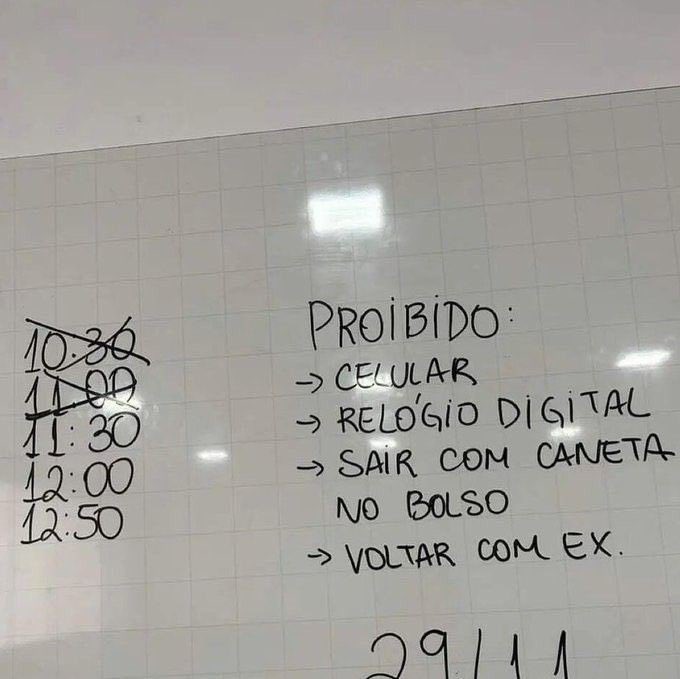 10:30
11:00
11:30
12:00
12:50
PROIBIDO:
→ CELULAR
→ RELÓGIO DIGITAL
→ SAIR COM CANETA
NO BOLSO
→ VOLTAR COM EX.
29/11